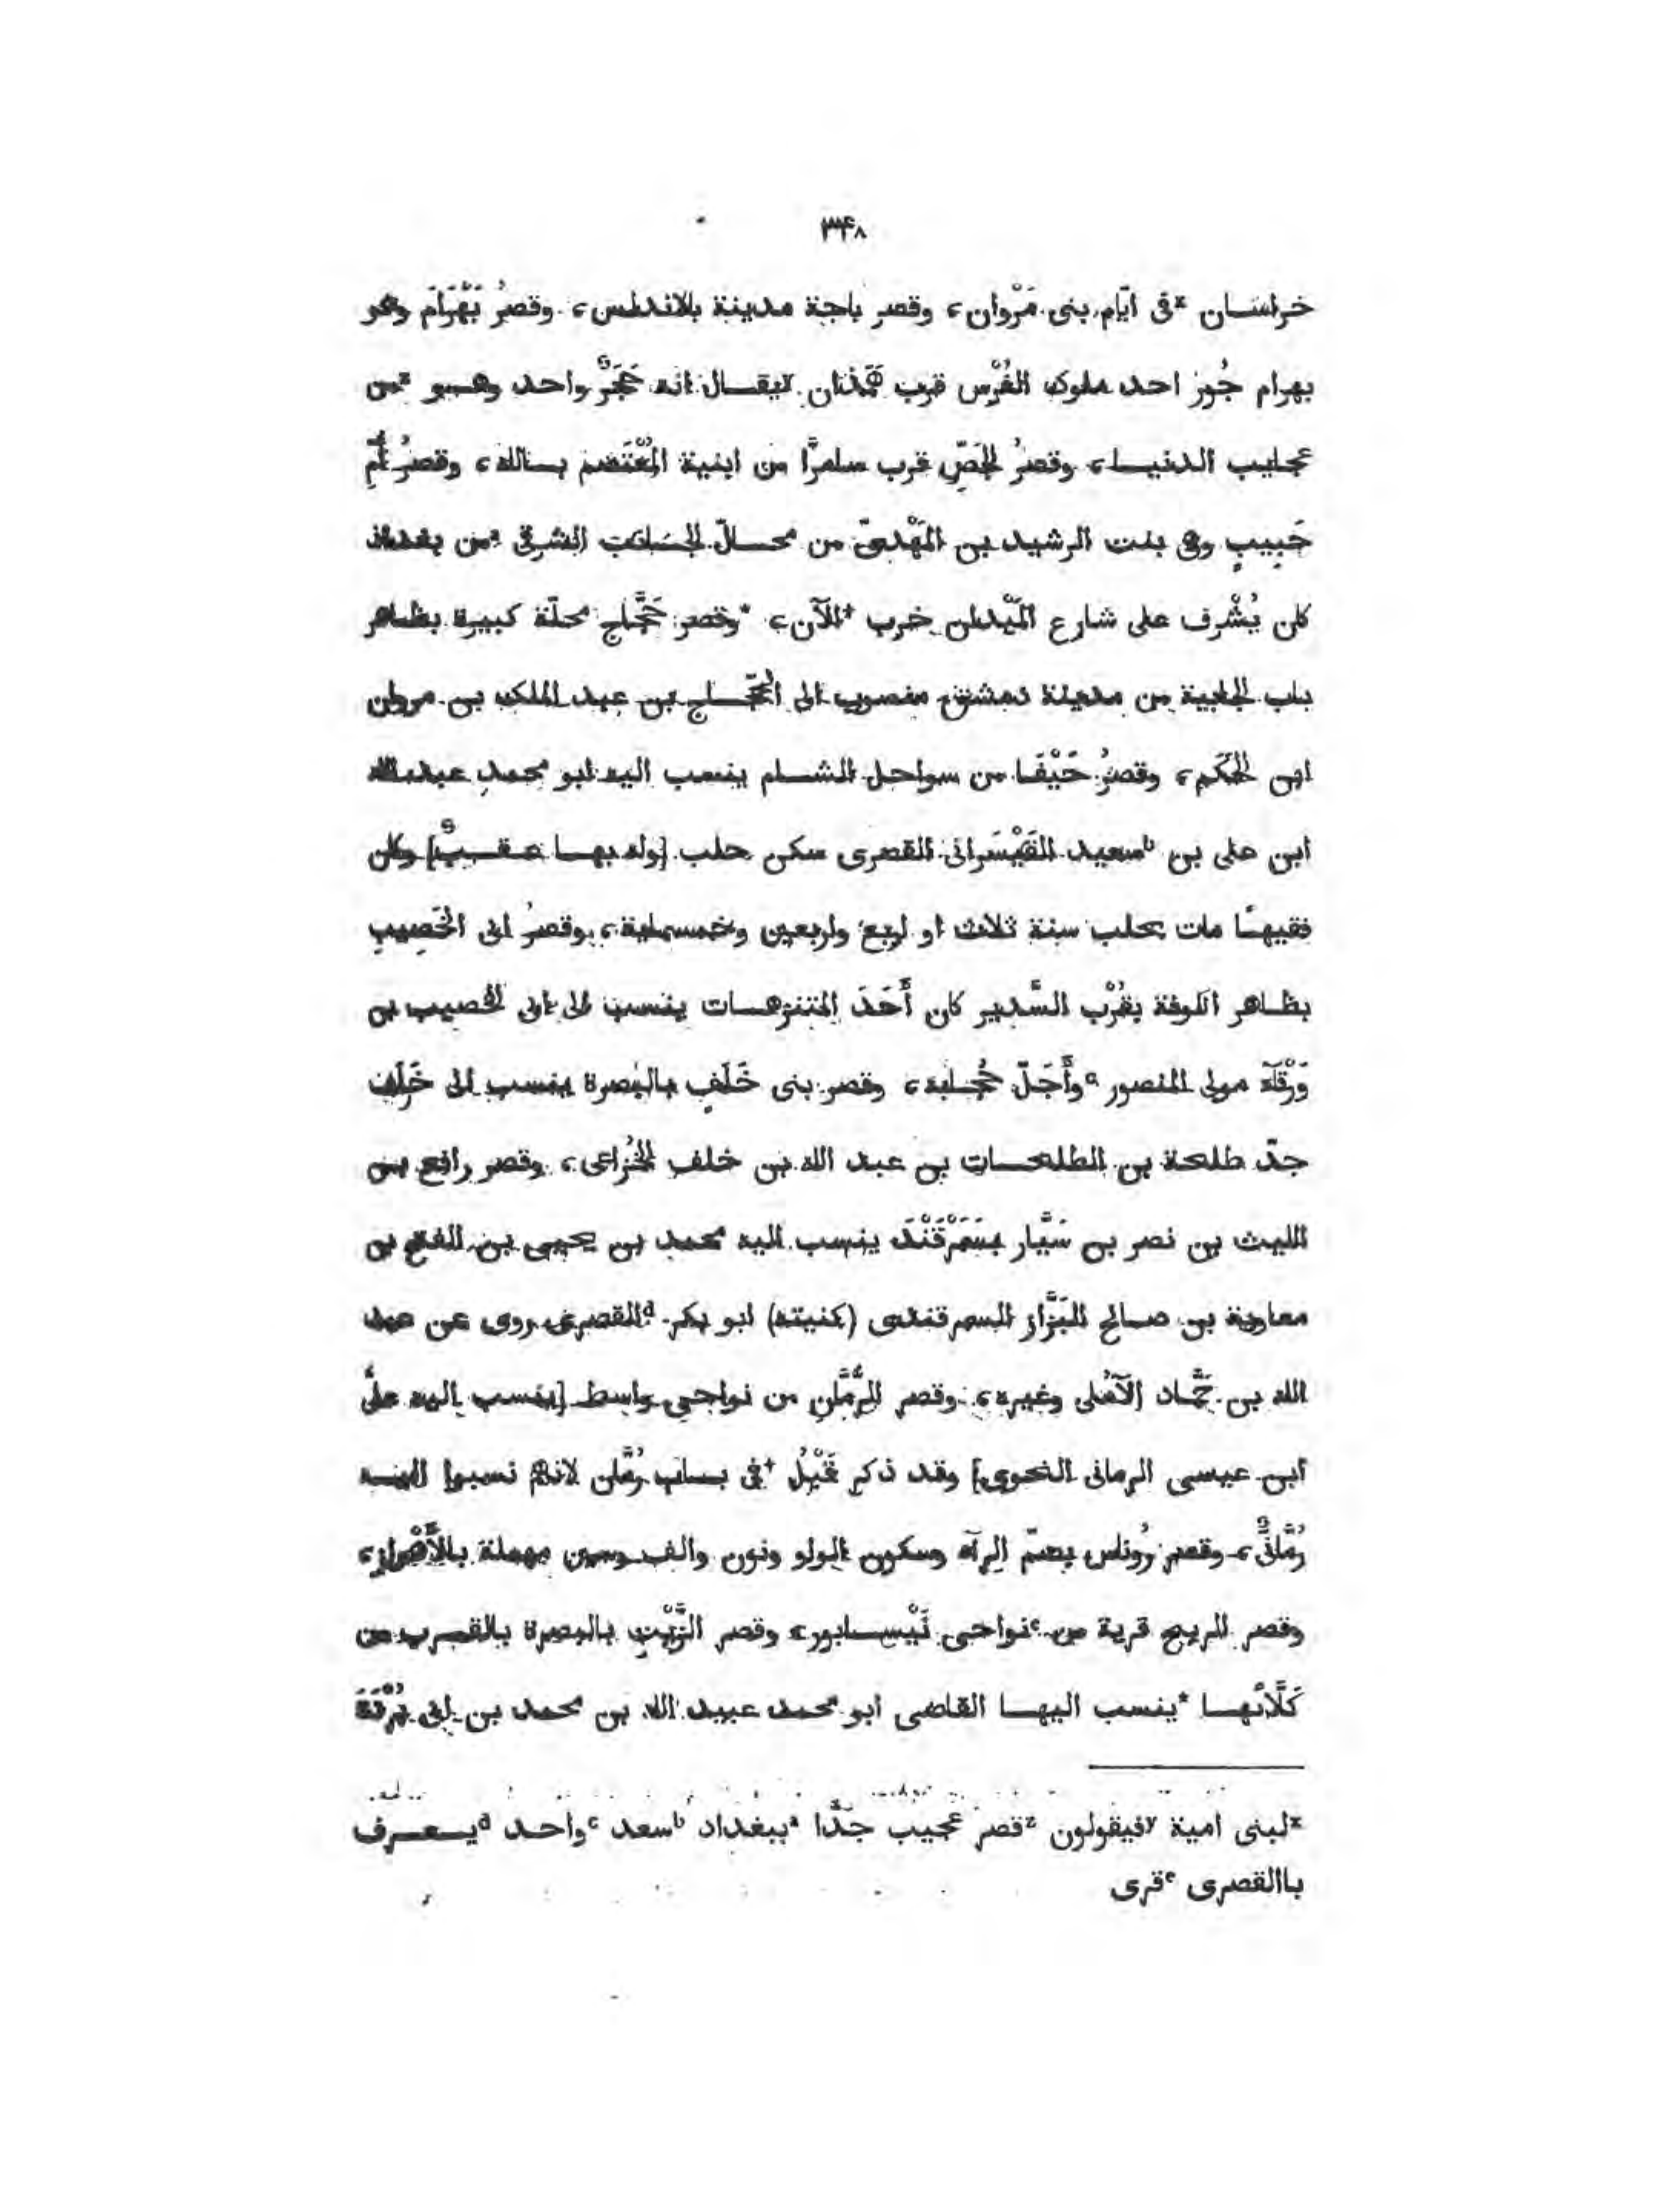 ٣٤٨
خراسان ˣفى ايّام بنى مَرْوان، وقصر باجة مدينة بالاندلس، وقصرُ بَهْرَامَ وهو
بهرام جُور احد ملوك الفُرْس قرب هَمَذان ʸيقال انه حَجَرٌ واحد وهو ᶻمن
عجايب الدنيا، وقصرُ الجَصِّ قرب سامرّا من ابنية المُعْتَصم بالله، وقصرُ أُمِّ
حَبِيبٍ وهى بنت الرشيد بن المَهْدىّ من محالّ الجانب الشرقى ᵃمن بغداد
كان يُشْرف على شارع المَيْدان خرب +الآن، *وقصر حَجَّاج محلّة كبيرة بظاهر
باب الجابية من مدينة دمشق منسوب الى الحَجّاج بن عبد الملك بن مروان
ابن الحَكَم، وقصرُ حَيْفَا من سواحل الشام ينسب اليه ابو محمد عبد الله
ابن على بن ᵇسعيد القَيْسَرانى القصرى سكن حلب [وله بها عقبٌ] وكان
فقيهًا مات بحلب سنة ثلاث او اربع واربعين وخمسماية، وقصرُ ابى الخَصِيبِ
بظاهر الكوفة بقُرْب السَّدير كان أَحَدَ المتنزهات ينسب الى ابى الخصيب بن
وَرْقَآءَ مولى المنصور ᶜوأَجَلّ حُجّابه، وقصر بنى خَلَفٍ بالبصرة ينسب الى خَلَفِ
جدّ طلحة بن الطلحات بن عبد الله بن خلف الخُزاعى، وقصر رافع بن
الليث بن نصر بن سَيَّار بسَمَرْقَنْدَ ينسب اليه محمد بن يحيى بن الفتح بن
معاوية بن صالح البَزَّاز السمرقندى (كنيته) ابو بكر ᵈالقصرى روى عن عبد
الله بن حَمَّاد الآمُلى وغيره، وقصر الرُّمَّانِ من نواحى واسط [ينسب اليه علىُّ
ابن عيسى الرمانى النحوى] وقد ذكر قَبْلُ +فى باب رُمَّان لانهم نسبوا اليه
رُمَّانىٌّ، وقصر رُوناس بضمّ الرآء وسكون الواو ونون والف وسين مهملة بالأَهْواز،
وقصر الريح قرية من ᵉنواحى نَيْسابور، وقصر الزَّيْتِ بالبصرة بالقرب من
كَلَّائها *ينسب اليها القاضى ابو محمد عبيد الله بن محمد بن ابى بُرْدَةَ
ˣلبنى امية ʸفيقولون ᶻقصر عجيب جدًّا ᵃببغداد ᵇسعد ᶜواحد ᵈيعرف
باالقصرى ᵉقرى